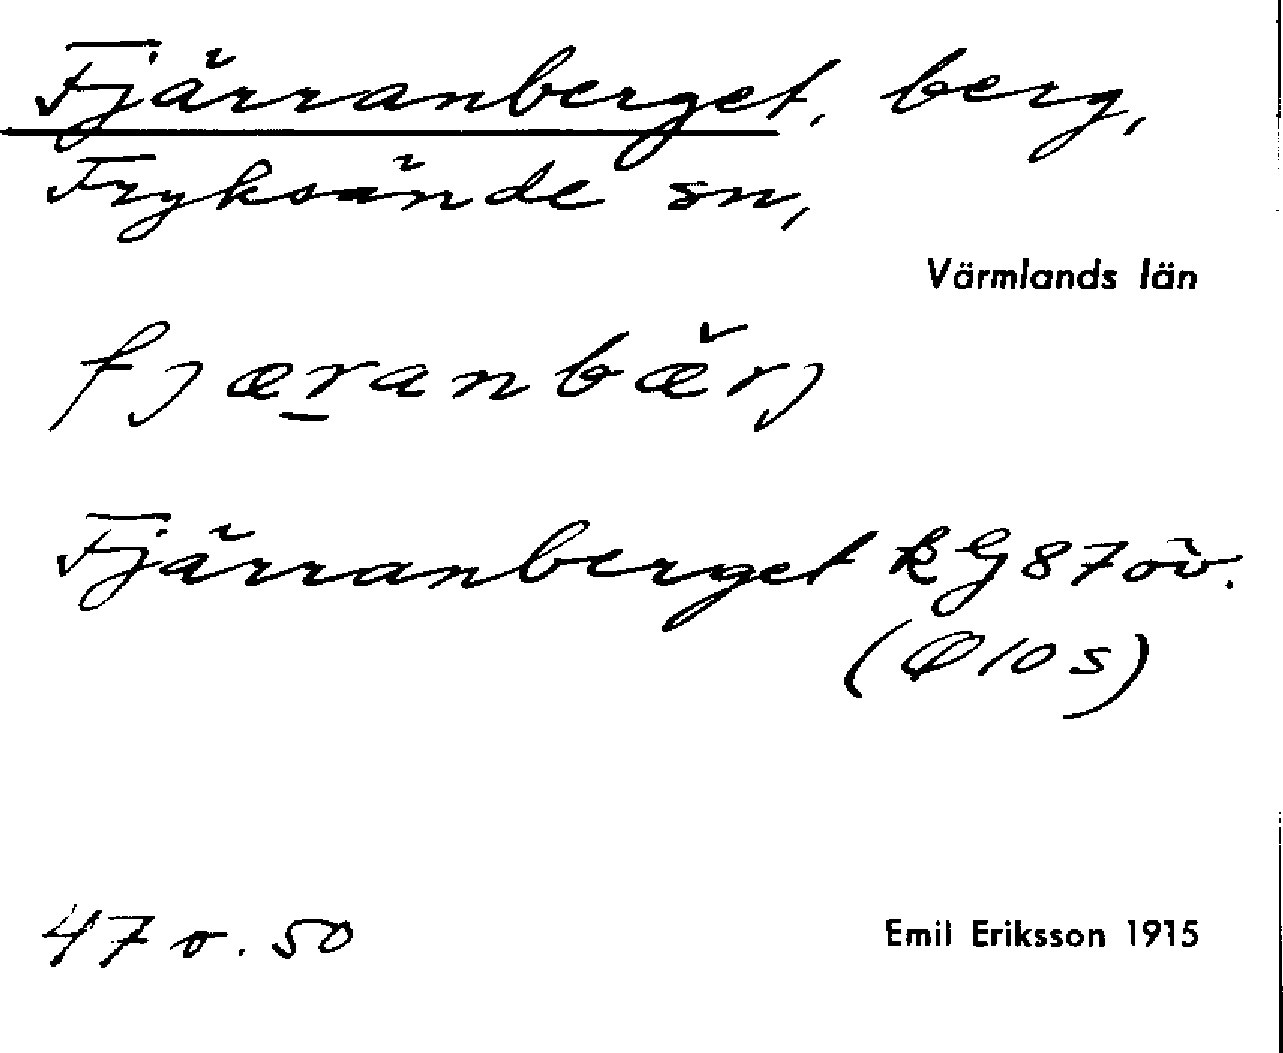 Fjärranberget, berg,
Fryksände sn,
Värmlands län
fjæranbærj
Fjärranberget RG87öv.
(Ø10s)
47 o. 50
Emil Eriksson 1915